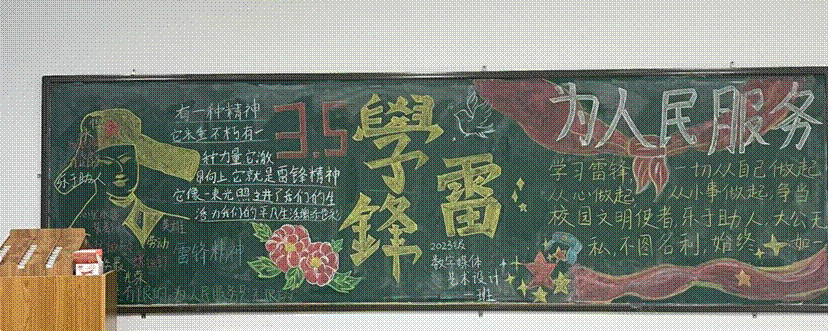 有一种精神
它永垂不朽有一
种力量它激
向上它就是雷锋精神
它像一束光照进了我们的生
活为我们的平凡生活
乐于助人
雷锋精神
3.5
學雷鋒
2023级
数字媒体
艺术设计
一班
为人民服务
学习雷锋 一切从自己做起,
从心做起, 从小事做起,争当
校园文明使者,乐于助人,大公无
私,不图名利,始终 如一
为人民服务是无限的